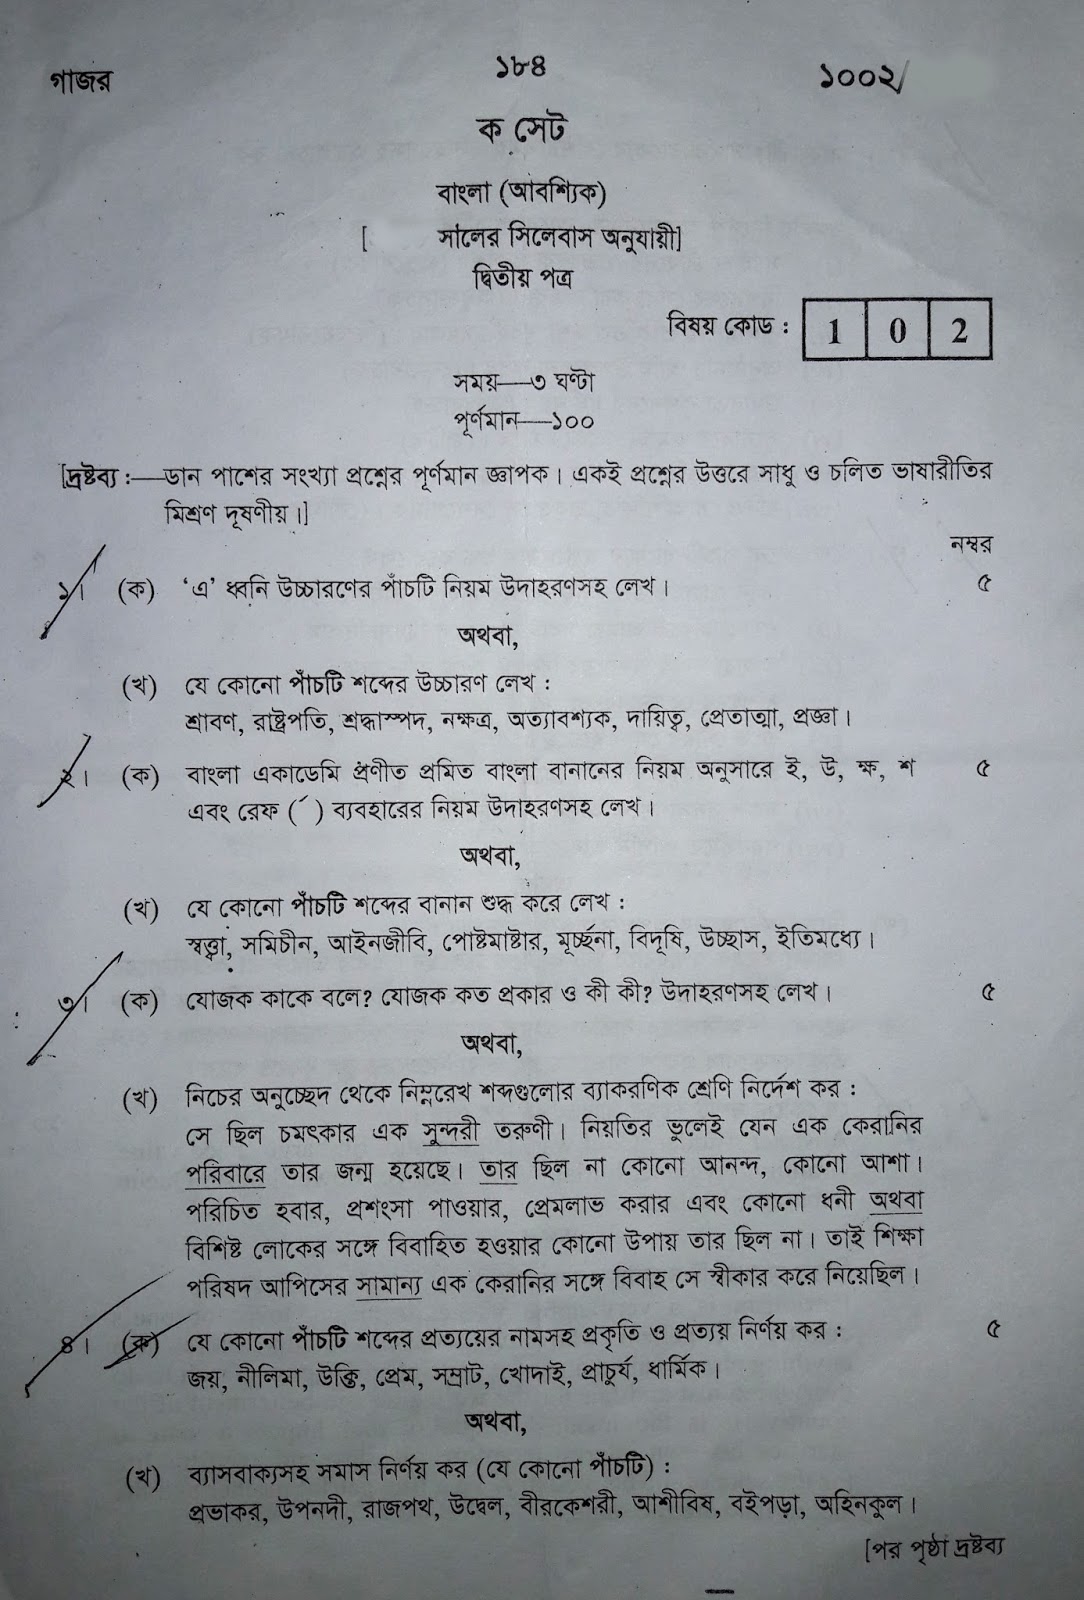 গাজর ১৮৪ ১০০২/
ক সেট
বাংলা (আবশ্যিক)
[ সালের সিলেবাস অনুযায়ী]
দ্বিতীয় পত্র
বিষয় কোড : 1 0 2
সময়—৩ ঘণ্টা
পূর্ণমান—১০০
[দ্রষ্টব্য :—ডান পাশের সংখ্যা প্রশ্নের পূর্ণমান জ্ঞাপক। একই প্রশ্নের উত্তরে সাধু ও চলিত ভাষারীতির
মিশ্রণ দূষণীয়।]
নম্বর
১। (ক) ‘এ’ ধ্বনি উচ্চারণের পাঁচটি নিয়ম উদাহরণসহ লেখ। ৫
অথবা,
(খ) যে কোনো পাঁচটি শব্দের উচ্চারণ লেখ :
শ্রাবণ, রাষ্ট্রপতি, শ্রদ্ধাস্পদ, নক্ষত্র, অত্যাবশ্যক, দায়িত্ব, প্রেতাত্মা, প্রজ্ঞা।
২। (ক) বাংলা একাডেমি প্রণীত প্রমিত বাংলা বানানের নিয়ম অনুসারে ই, উ, ক্ষ, শ ৫
এবং রেফ (´) ব্যবহারের নিয়ম উদাহরণসহ লেখ।
অথবা,
(খ) যে কোনো পাঁচটি শব্দের বানান শুদ্ধ করে লেখ :
স্বত্ত্বা, সমিচীন, আইনজীবি, পোষ্টমাষ্টার, মূর্চ্ছনা, বিদূষি, উচ্ছাস, ইতিমধ্যে।
৩। (ক) যোজক কাকে বলে? যোজক কত প্রকার ও কী কী? উদাহরণসহ লেখ। ৫
অথবা,
(খ) নিচের অনুচ্ছেদ থেকে নিম্নরেখ শব্দগুলোর ব্যাকরণিক শ্রেণি নির্দেশ কর :
সে ছিল চমৎকার এক সুন্দরী তরুণী। নিয়তির ভুলেই যেন এক কেরানির
পরিবারে তার জন্ম হয়েছে। তার ছিল না কোনো আনন্দ, কোনো আশা।
পরিচিত হবার, প্রশংসা পাওয়ার, প্রেমলাভ করার এবং কোনো ধনী অথবা
বিশিষ্ট লোকের সঙ্গে বিবাহিত হওয়ার কোনো উপায় তার ছিল না। তাই শিক্ষা
পরিষদ আপিসের সামান্য এক কেরানির সঙ্গে বিবাহ সে স্বীকার করে নিয়েছিল।
৪। (ক) যে কোনো পাঁচটি শব্দের প্রত্যয়ের নামসহ প্রকৃতি ও প্রত্যয় নির্ণয় কর : ৫
জয়, নীলিমা, উক্তি, প্রেম, সম্রাট, খোদাই, প্রাচুর্য, ধার্মিক।
অথবা,
(খ) ব্যাসবাক্যসহ সমাস নির্ণয় কর (যে কোনো পাঁচটি) :
প্রভাকর, উপনদী, রাজপথ, উদ্বেল, বীরকেশরী, আশীবিষ, বইপড়া, অহিনকুল।
[পর পৃষ্ঠা দ্রষ্টব্য